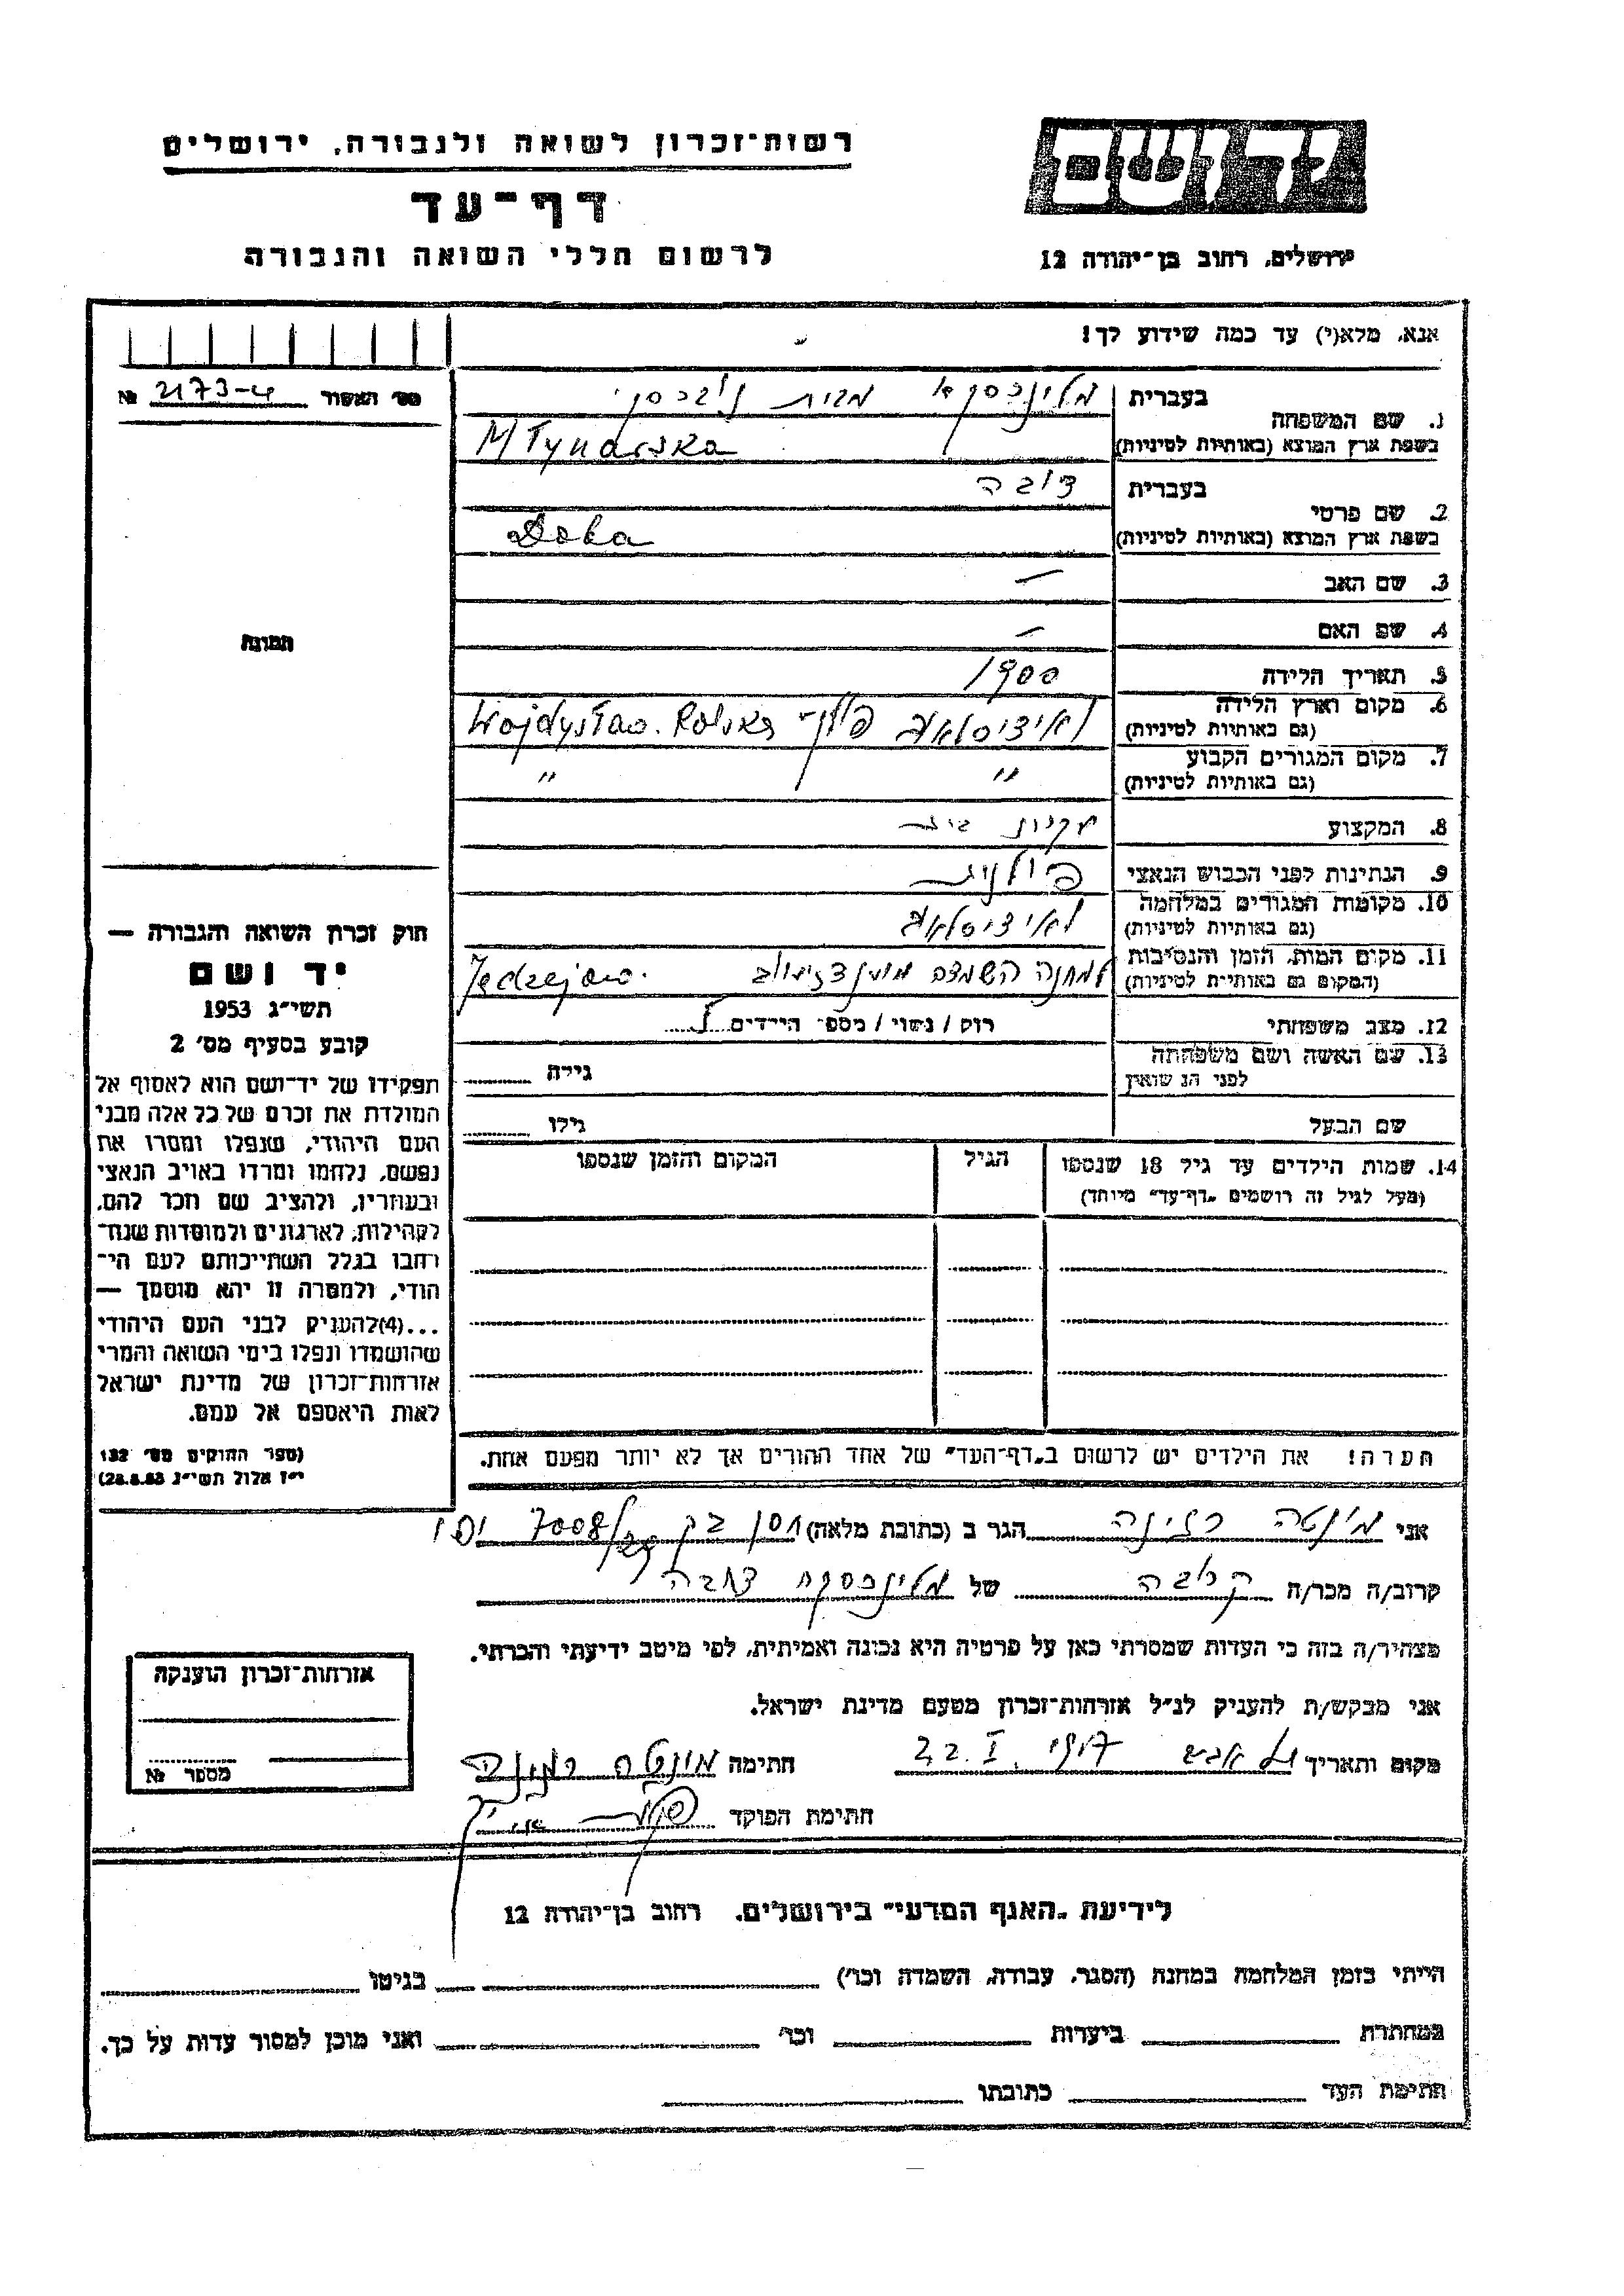 רשות־זכרון לשואה ולגבורה, ירושלים
דף־עד
לרשום חללי השואה והגבורה
יד ושם
ירושלים, רחוב בן־יהודה 12
אנא, מלא(י) עד כמה שידוע לך!
מס׳ האשור 2173-4 №
תמונה
1. שם המשפחה
בעברית
בשפת ארץ המוצא (באותיות לטיניות)
MTynarska
2. שם פרטי
בעברית דובה
בשפת ארץ המוצא (באותיות לטיניות) Doba
3. שם האב —
4. שם האם —
5. תאריך הלידה 1900
6. מקום וארץ הלידה
(גם באותיות לטיניות)
פולין Polska
7. מקום המגורים הקבוע " "
(גם באותיות לטיניות)
8. המקצוע
9. הנתינות לפני הכבוש הנאצי פולנית
10. מקומות המגורים במלחמה
(גם באותיות לטיניות)
11. מקום המות, הזמן והנסיבות
(המקום גם באותיות לטיניות)
12. מצב משפחתי רוק / נשוי / מספר הילדים
13. שם האשה ושם משפחתה
לפני הנשואין
גילה
שם הבעל גילו
14. שמות הילדים עד גיל 18 שנספו
(מעל לגיל זה רושמים „דף־עד״ מיוחד)
הגיל
המקום והזמן שנספו
הערה! את הילדים יש לרשום ב„דף־העד״ של אחד ההורים אך לא יותר מפעם אחת.
חוק זכרון השואה והגבורה —
יד ושם
תשי״ג 1953
קובע בסעיף מס׳ 2
תפקידו של יד־ושם הוא לאסוף אל
המולדת את זכרם של כל אלה מבני
העם היהודי, שנפלו ומסרו את
נפשם, נלחמו ומרדו באויב הנאצי
ובעוזריו, ולהציב שם וזכר להם,
לקהילות, לארגונים ולמוסדות שנח־
רבו בגלל השתייכותם לעם הי־
הודי, ולמטרה זו יהא מוסמך —
...(4)להעניק לבני העם היהודי
שהושמדו ונפלו בימי השואה והמרי
אזרחות־זכרון של מדינת ישראל
לאות היאספם אל עמם.
(ספר החוקים מס׳ 132
י״ז אלול תשי״ג 28.8.53)
אני הגר ב (כתובת מלאה)
קרוב/ה מכר/ה קרובה של
מצהיר/ה בזה כי העדות שמסרתי כאן על פרטיה היא נכונה ואמיתית, לפי מיטב ידיעתי והכרתי.
אני מבקש/ת להעניק לנ״ל אזרחות־זכרון מטעם מדינת ישראל.
מקום ותאריך חתימה
חתימת הפוקד
אזרחות־זכרון הוענקה
מספר №
לידיעת „האגף המדעי״ בירושלים, רחוב בן־יהודה 12
הייתי בזמן המלחמה במחנה (הסגר, עבודה, השמדה וכו׳) בגיטו
במחתרת ביערות וכו׳ ואני מוכן למסור עדות על כך.
חתימת העד כתובתו